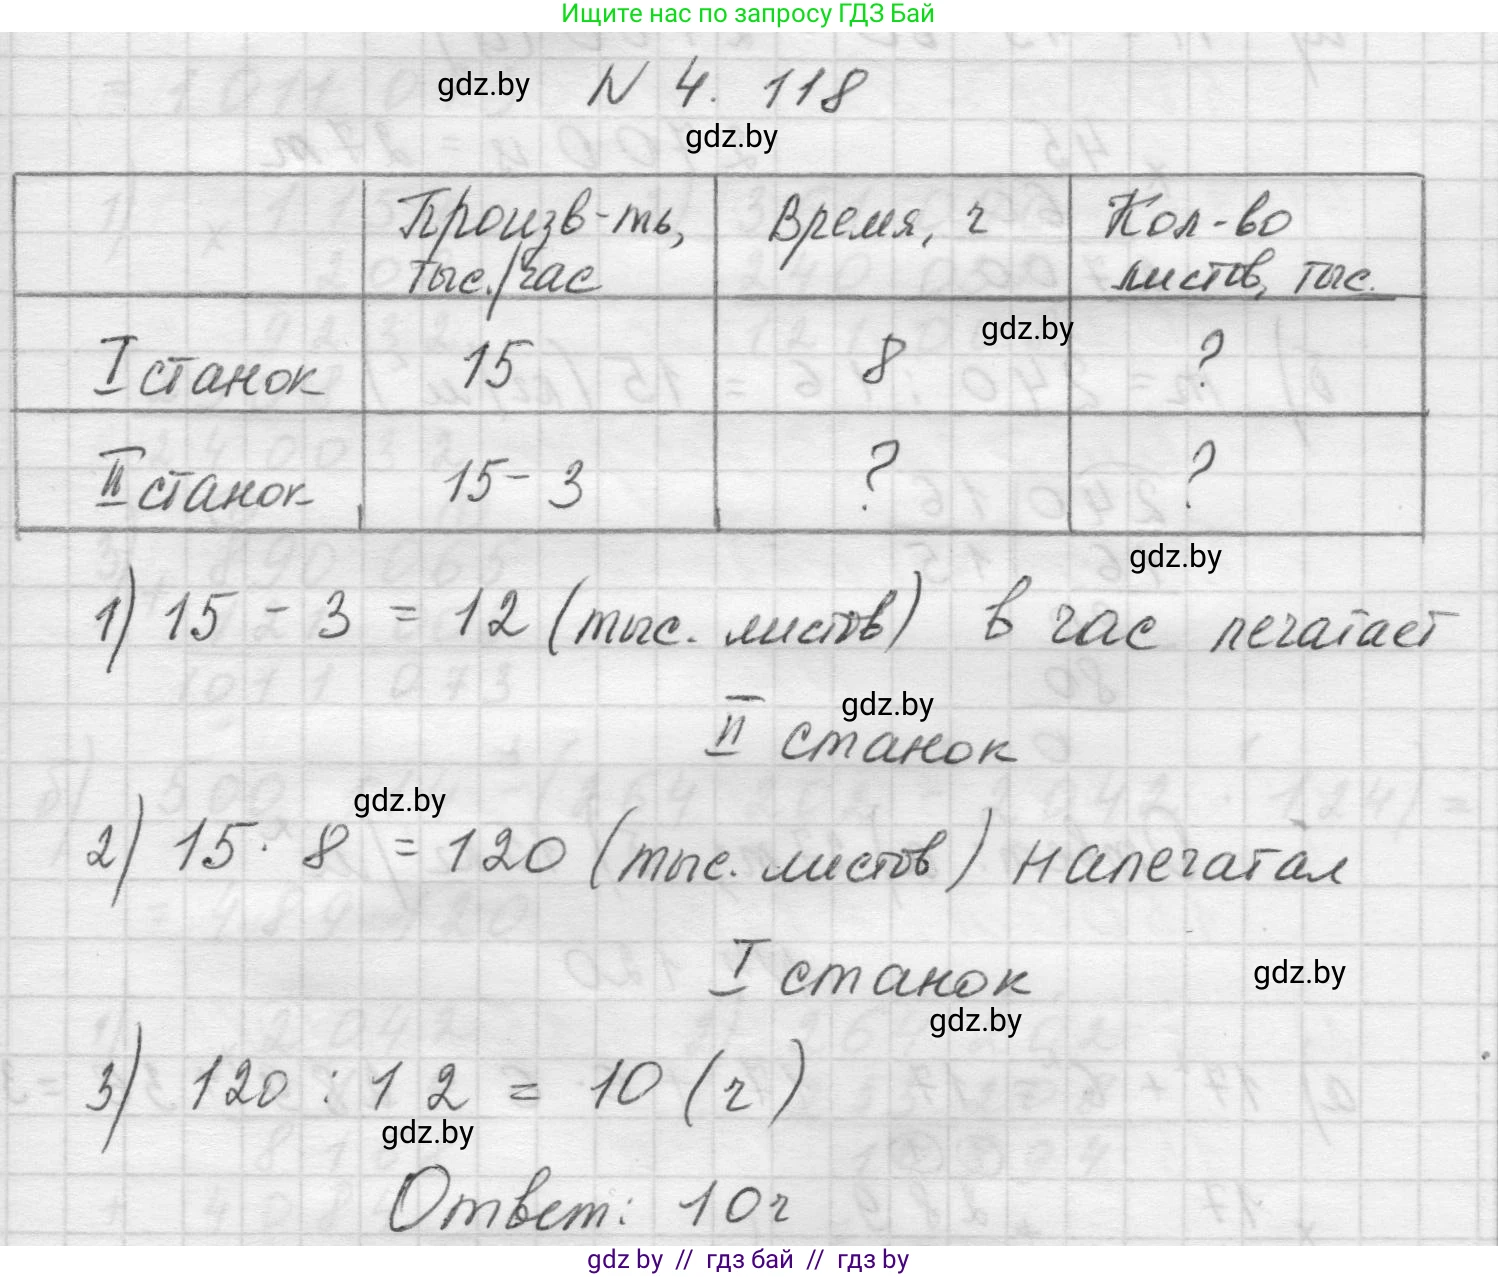 Ищите нас по запросу ГДЗ Бай
gdz.by
N 4. 118
gdz.by
Произв-ть, тыс./час
Время, ч
Кол-во листов, тыс.
gdz.by
I станок 15 8 ?
II станок 15 - 3 ? ?
gdz.by
1) 15 - 3 = 12 (тыс. листов) в час печатает
gdz.by
II станок
gdz.by
2) 15 · 8 = 120 (тыс. листов) напечатал
I станок
gdz.by
gdz.by
3) 120 : 12 = 10 (ч)
gdz.by
Ответ: 10ч
gdz.by // гдз бай // гдз by